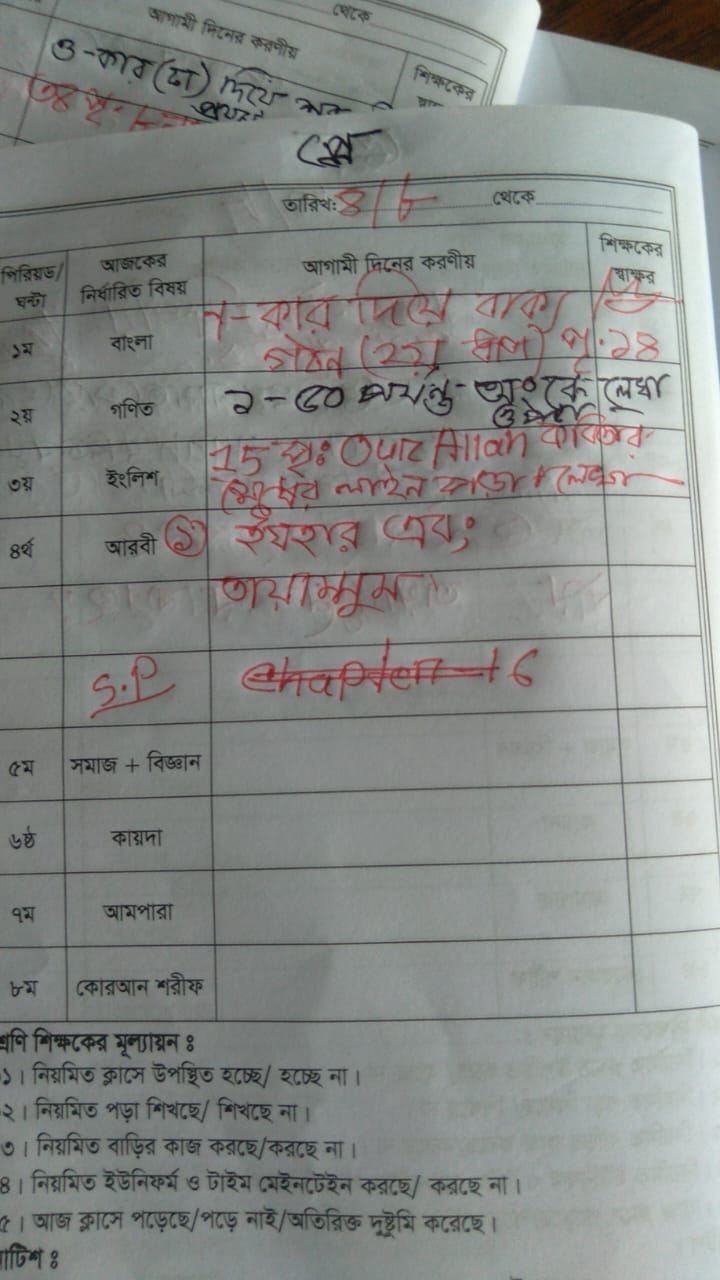 থেকে
আগামী দিনের করণীয়
শিক্ষকের
ও-কার (ো) দিয়ে
৩৪ পৃ:
প্লে
তারিখ: ৪/৮ থেকে
পিরিয়ড/ঘন্টা আজকের নির্ধারিত বিষয় আগামী দিনের করণীয় শিক্ষকের স্বাক্ষর
১ম বাংলা
-কার দিয়ে বাক্য
গঠন (২য় ধাপ) পৃ. ১৪
২য় গণিত ১-৫০ পর্যন্ত অংকে লেখা
ও পড়া
৩য় ইংলিশ 15 পৃঃ Our Allah কবিতার
লাইন পড়া + লেখা
৪র্থ আরবী ১ ইযহার এবং
তায়াম্মুম
S.P Chapter-1 6
৫ম সমাজ + বিজ্ঞান
৬ষ্ঠ কায়দা
৭ম আমপারা
৮ম কোরআন শরীফ
শ্রেণি শিক্ষকের মূল্যায়ন ঃ
১। নিয়মিত ক্লাসে উপস্থিত হচ্ছে/ হচ্ছে না।
২। নিয়মিত পড়া শিখছে/ শিখছে না।
৩। নিয়মিত বাড়ির কাজ করছে/করছে না।
৪। নিয়মিত ইউনিফর্ম ও টাইম মেইনটেইন করছে/ করছে না।
৫। আজ ক্লাসে পড়েছে/পড়ে নাই/অতিরিক্ত দুষ্টুমি করেছে।
নোটিশ ঃ